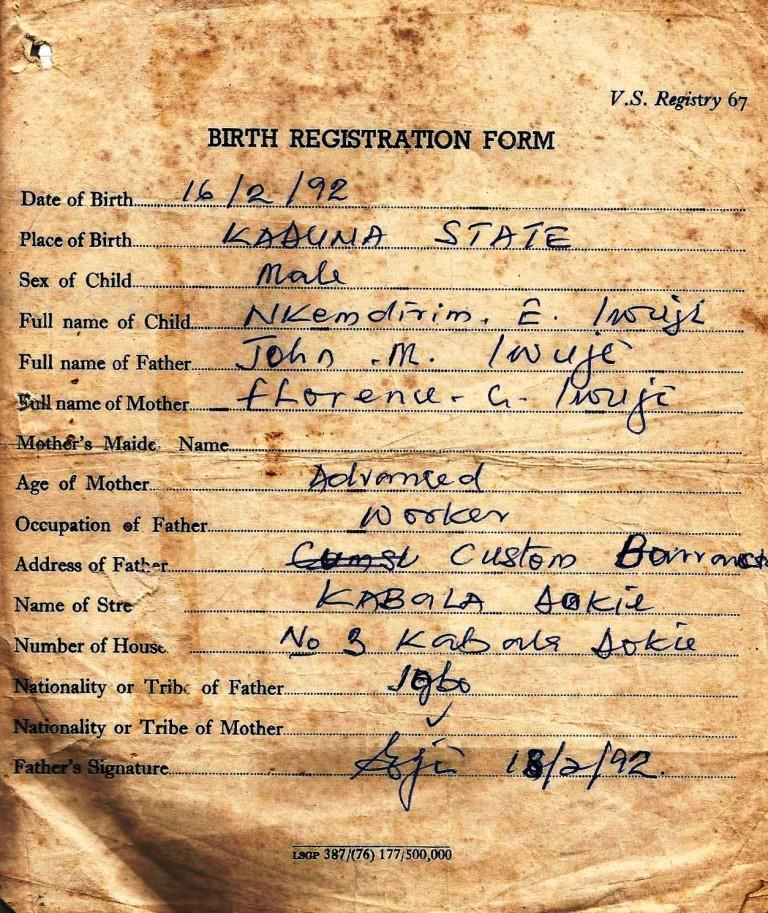 V.S. Registry 67
BIRTH REGISTRATION FORM
Date of Birth 16/2/92
Place of Birth KADUNA STATE
Sex of Child Male
Full name of Child Nkemdirim. E. Iwuji
Full name of Father John .M. Iwuje
Full name of Mother Florence. G. Iwuje
Mother's Maide Name
Age of Mother Advanced
Occupation of Father Worker
Address of Father Custom Barracks
Name of Stre KABALA DOKIE
Number of House No 3 Kabala Dokie
Nationality or Tribe of Father Igbo
Nationality or Tribe of Mother ✓
Father's Signature 18/2/92.
LSGP 387/(76) 177/500,000